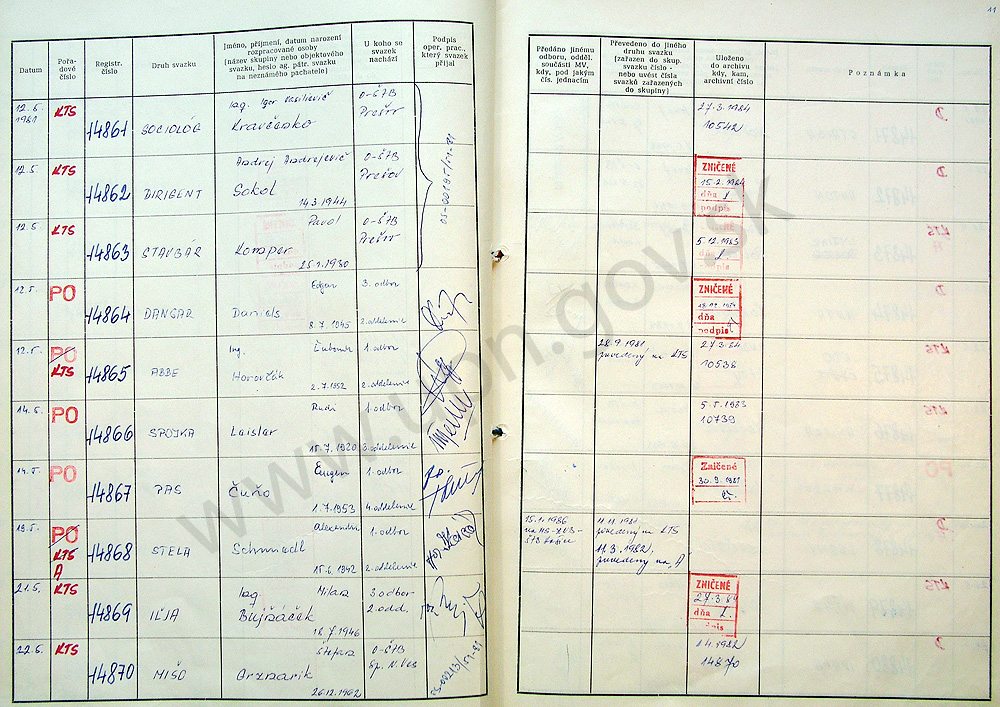 11
Datum
Pořa-
dové
číslo
Registr.
číslo
Druh svazku
Jméno, příjmení, datum narození
rozpracované osoby
(název skupiny nebo objektového
svazku, heslo ag. pátr. svazku
na neznámého pachatele)
U koho se
svazek
nachází
Podpis
oper. prac.,
který svazek
přijal
Předáno jinému
odboru, odděl.
součásti MV,
kdy, pod jakým
čís. jednacím
Převedeno do jiného
druhu svazku
(zařazen do skup.
svazku číslo -
nebo uvést čísla
svazků zařazených
do skupiny)
Uloženo
do archivu
kdy, kam,
archivní číslo
Poznámka
12.5.
1981
KTS
14861
SOCIOLÓG
Ing. Igor Vasilievič
Kravčenko
O-ŠTB
Prešov
27.3.1984
10542
D
12.5.
KTS
14862
DIRIGENT
Andrej Andrejevič
Sokol
14.3.1944
O-ŠTB
Prešov
ZNIČENÉ
15.2.1984
dňa
podpis
D
12.5.
KTS
14863
STAVBÁR
Pavol
Kompér
25.1.1930
O-ŠTB
Prešov
5.12.1983
12.5.
PO
14864
DANGAR
Edgar
Daniels
8.7.1945
3. odbor
2. oddelenie
ZNIČENÉ
dňa
podpis
12.5.
PO
KTS
14865
ABBE
Ing. Ľubomír
Horovčák
2.7.1952
1. odbor
2. oddelenie
28.9.1981,
prevedený na KTS
27.3.84
10538
14.5.
PO
14866
SPOJKA
Rudi
Laislar
15.7.1920
1. odbor
3. oddelenie
5.5.1983
10739
14.5.
PO
14867
PAS
Eugen
Čuňo
1.7.1953
1. odbor
4. oddelenie
Zničené
30.9.1981
19.5.
PO
KTS
A
14868
STELA
Alexander
Schmiedl
15.6.1942
1. odbor
2. oddelenie
15.1.1986
11.11.1981
prevedený na KTS
11.3.1982,
prevedený na „A
21.5.
KTS
14869
IĽJA
Ing. Milan
Bujňáček
18.7.1946
3 odbor
2. odd.
ZNIČENÉ
27.3.84
dňa
22.5.
KTS
14870
MIŠO
Štefan
Grznárik
26.12.1962
O-ŠTB
Sp. N. Ves
1.4.1982
14870
www.upn.gov.sk